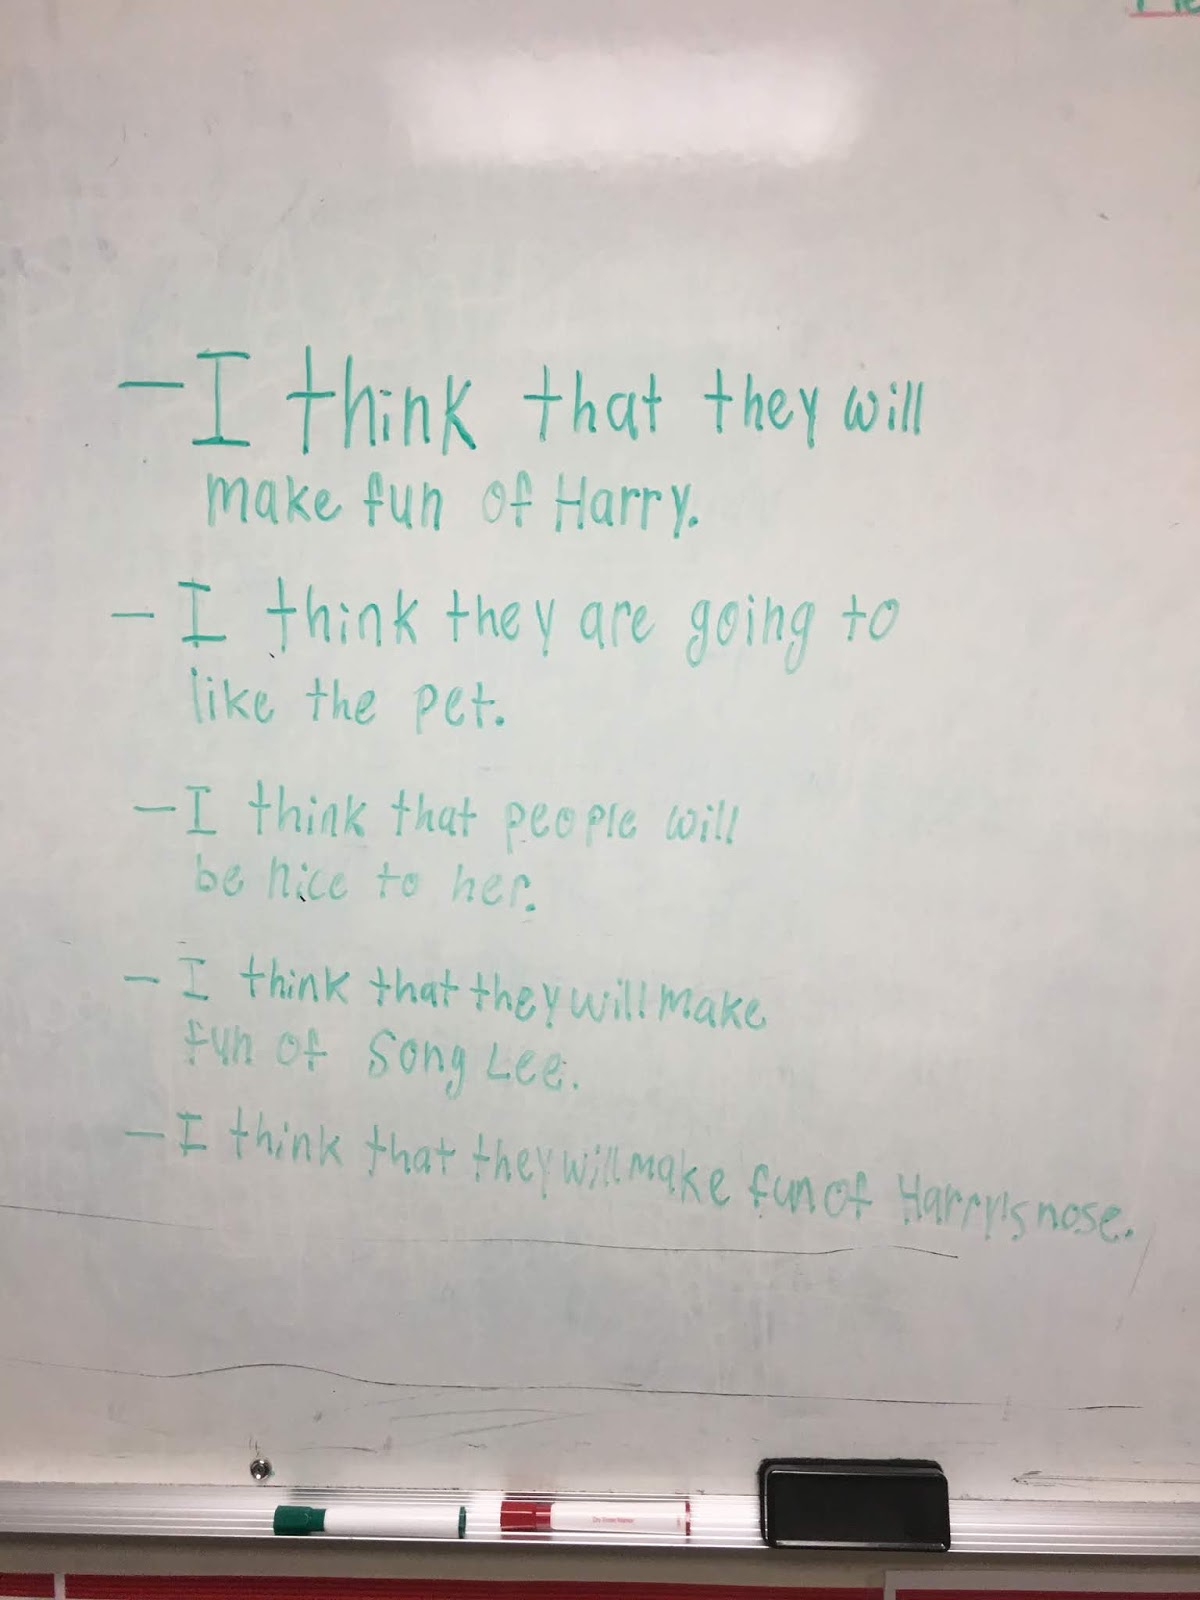 - I think that they will
make fun of Harry.
- I think they are going to
like the pet.
- I think that people will
be nice to her.
- I think that they will make
fun of Song Lee.
- I think that they will make fun of Harry's nose.